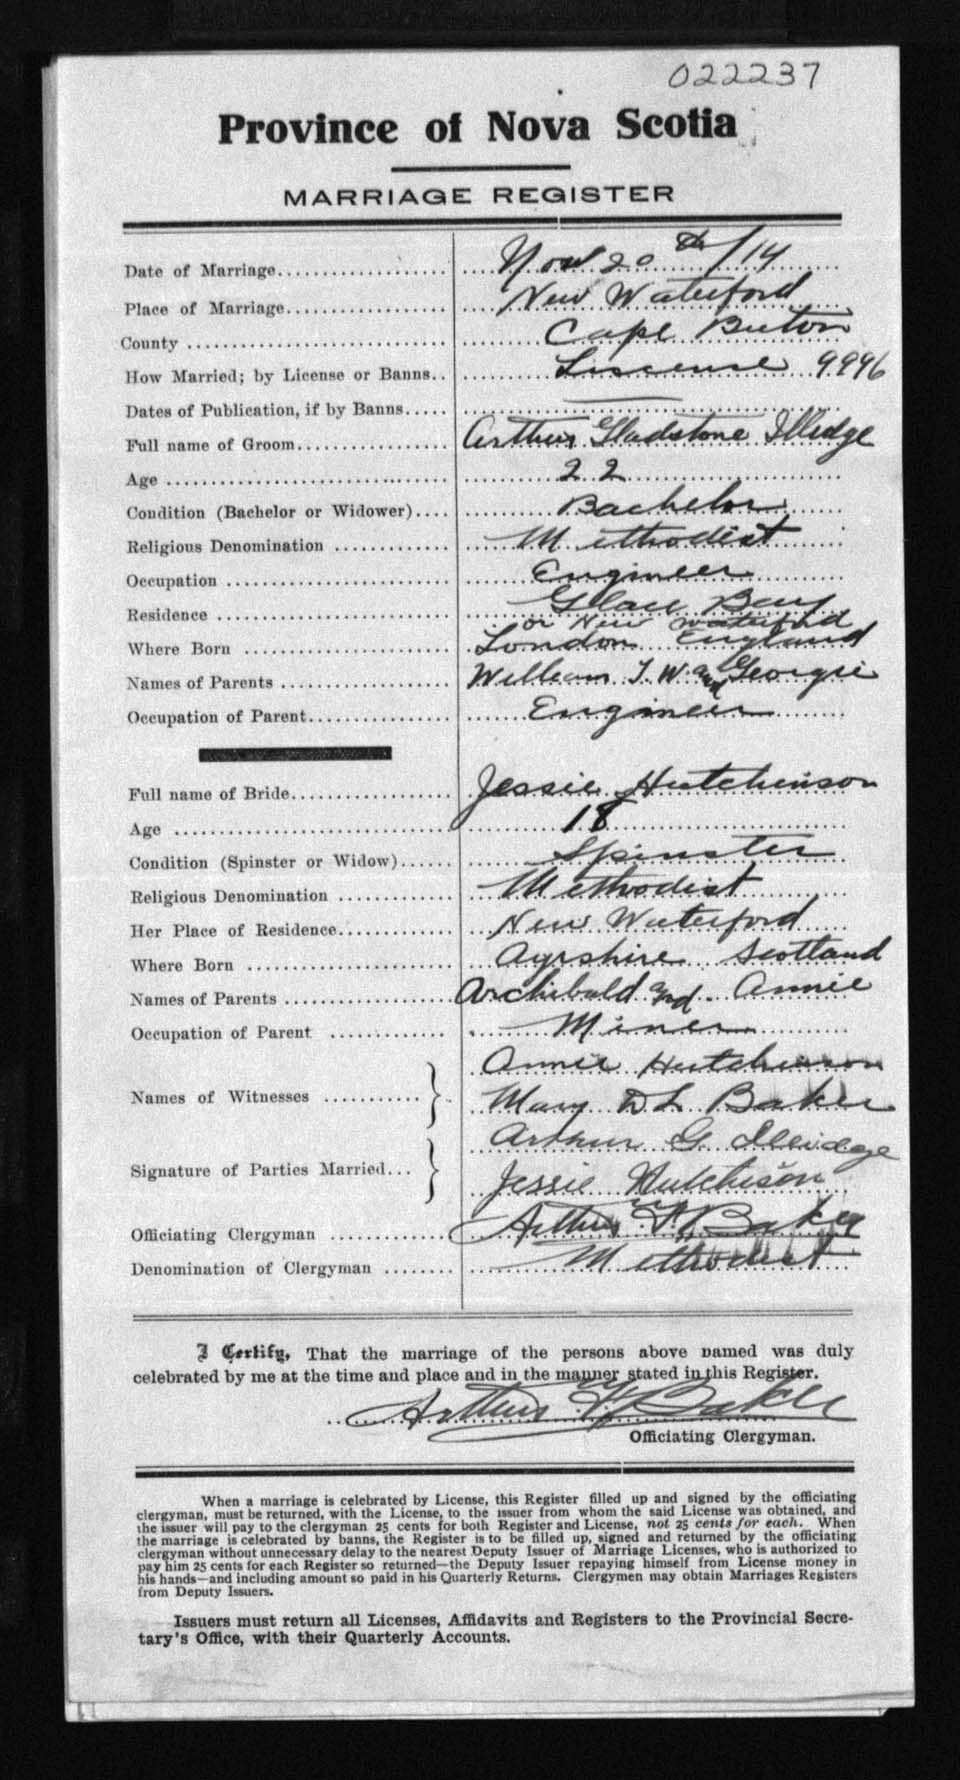 022237
Province of Nova Scotia
MARRIAGE REGISTER
Date of Marriage.................... Nov 20th/14
Place of Marriage................... New Waterford
County ............................. Cape Breton
How Married; by License or Banns.. Liscense 9996
Dates of Publication, if by Banns..... —
Full name of Groom.................. Arthur Gladstone Illidge
Age ................................ 22
Condition (Bachelor or Widower).... Bachelor
Religious Denomination ............ Methodist
Occupation ......................... Engineer
Residence .......................... Glace Bay
or New Waterford
Where Born ......................... London England
Names of Parents ................... William T. W. and Georgie
Occupation of Parent................ Engineer
Full name of Bride.................. Jessie Hutchinson
Age ................................ 18
Condition (Spinster or Widow)...... Spinster
Religious Denomination ............ Methodist
Her Place of Residence............. New Waterford
Where Born ......................... Ayrshire Scotland
Names of Parents ................... Archibald and Annie
Occupation of Parent ............... Miner
Annie Hutchinson
Names of Witnesses ........... Mary D L Baker
Arthur G. Illidge
Signature of Parties Married... Jessie Hutchison
Officiating Clergyman ............. Arthur W. Baker
Denomination of Clergyman ........ Methodist
I Certify, That the marriage of the persons above named was duly
celebrated by me at the time and place and in the manner stated in this Register.
Arthur W Baker
Officiating Clergyman.
When a marriage is celebrated by License, this Register filled up and signed by the officiating
clergyman, must be returned, with the License, to the issuer from whom the said License was obtained, and
the issuer will pay to the clergyman 25 cents for both Register and License, not 25 cents for each. When
the marriage is celebrated by banns, the Register is to be filled up, signed and returned by the officiating
clergyman without unnecessary delay to the nearest Deputy Issuer of Marriage Licenses, who is authorized to
pay him 25 cents for each Register so returned—the Deputy Issuer repaying himself from License money in
his hands—and including amount so paid in his Quarterly Returns. Clergymen may obtain Marriages Registers
from Deputy Issuers.
Issuers must return all Licenses, Affidavits and Registers to the Provincial Secre-
tary's Office, with their Quarterly Accounts.